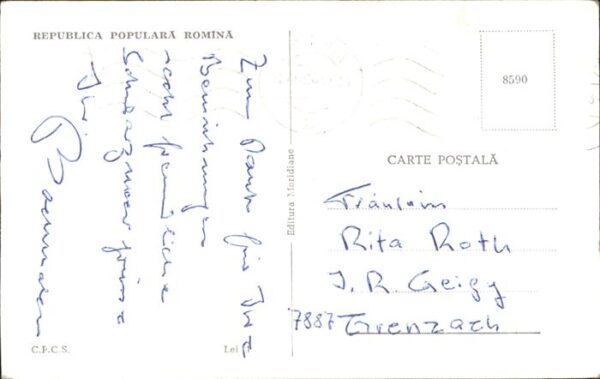 REPUBLICA POPULARĂ ROMÎNĂ
Zum Dank für Ihre
Bemühungen
recht freundliche
Schwarzmeergrüsse
Ihr
C.P.C.S.
Lei
Editura Meridiane
8590
CARTE POȘTALĂ
Fräulein
Rita Roth
J. R. Geigy
7887 Grenzach